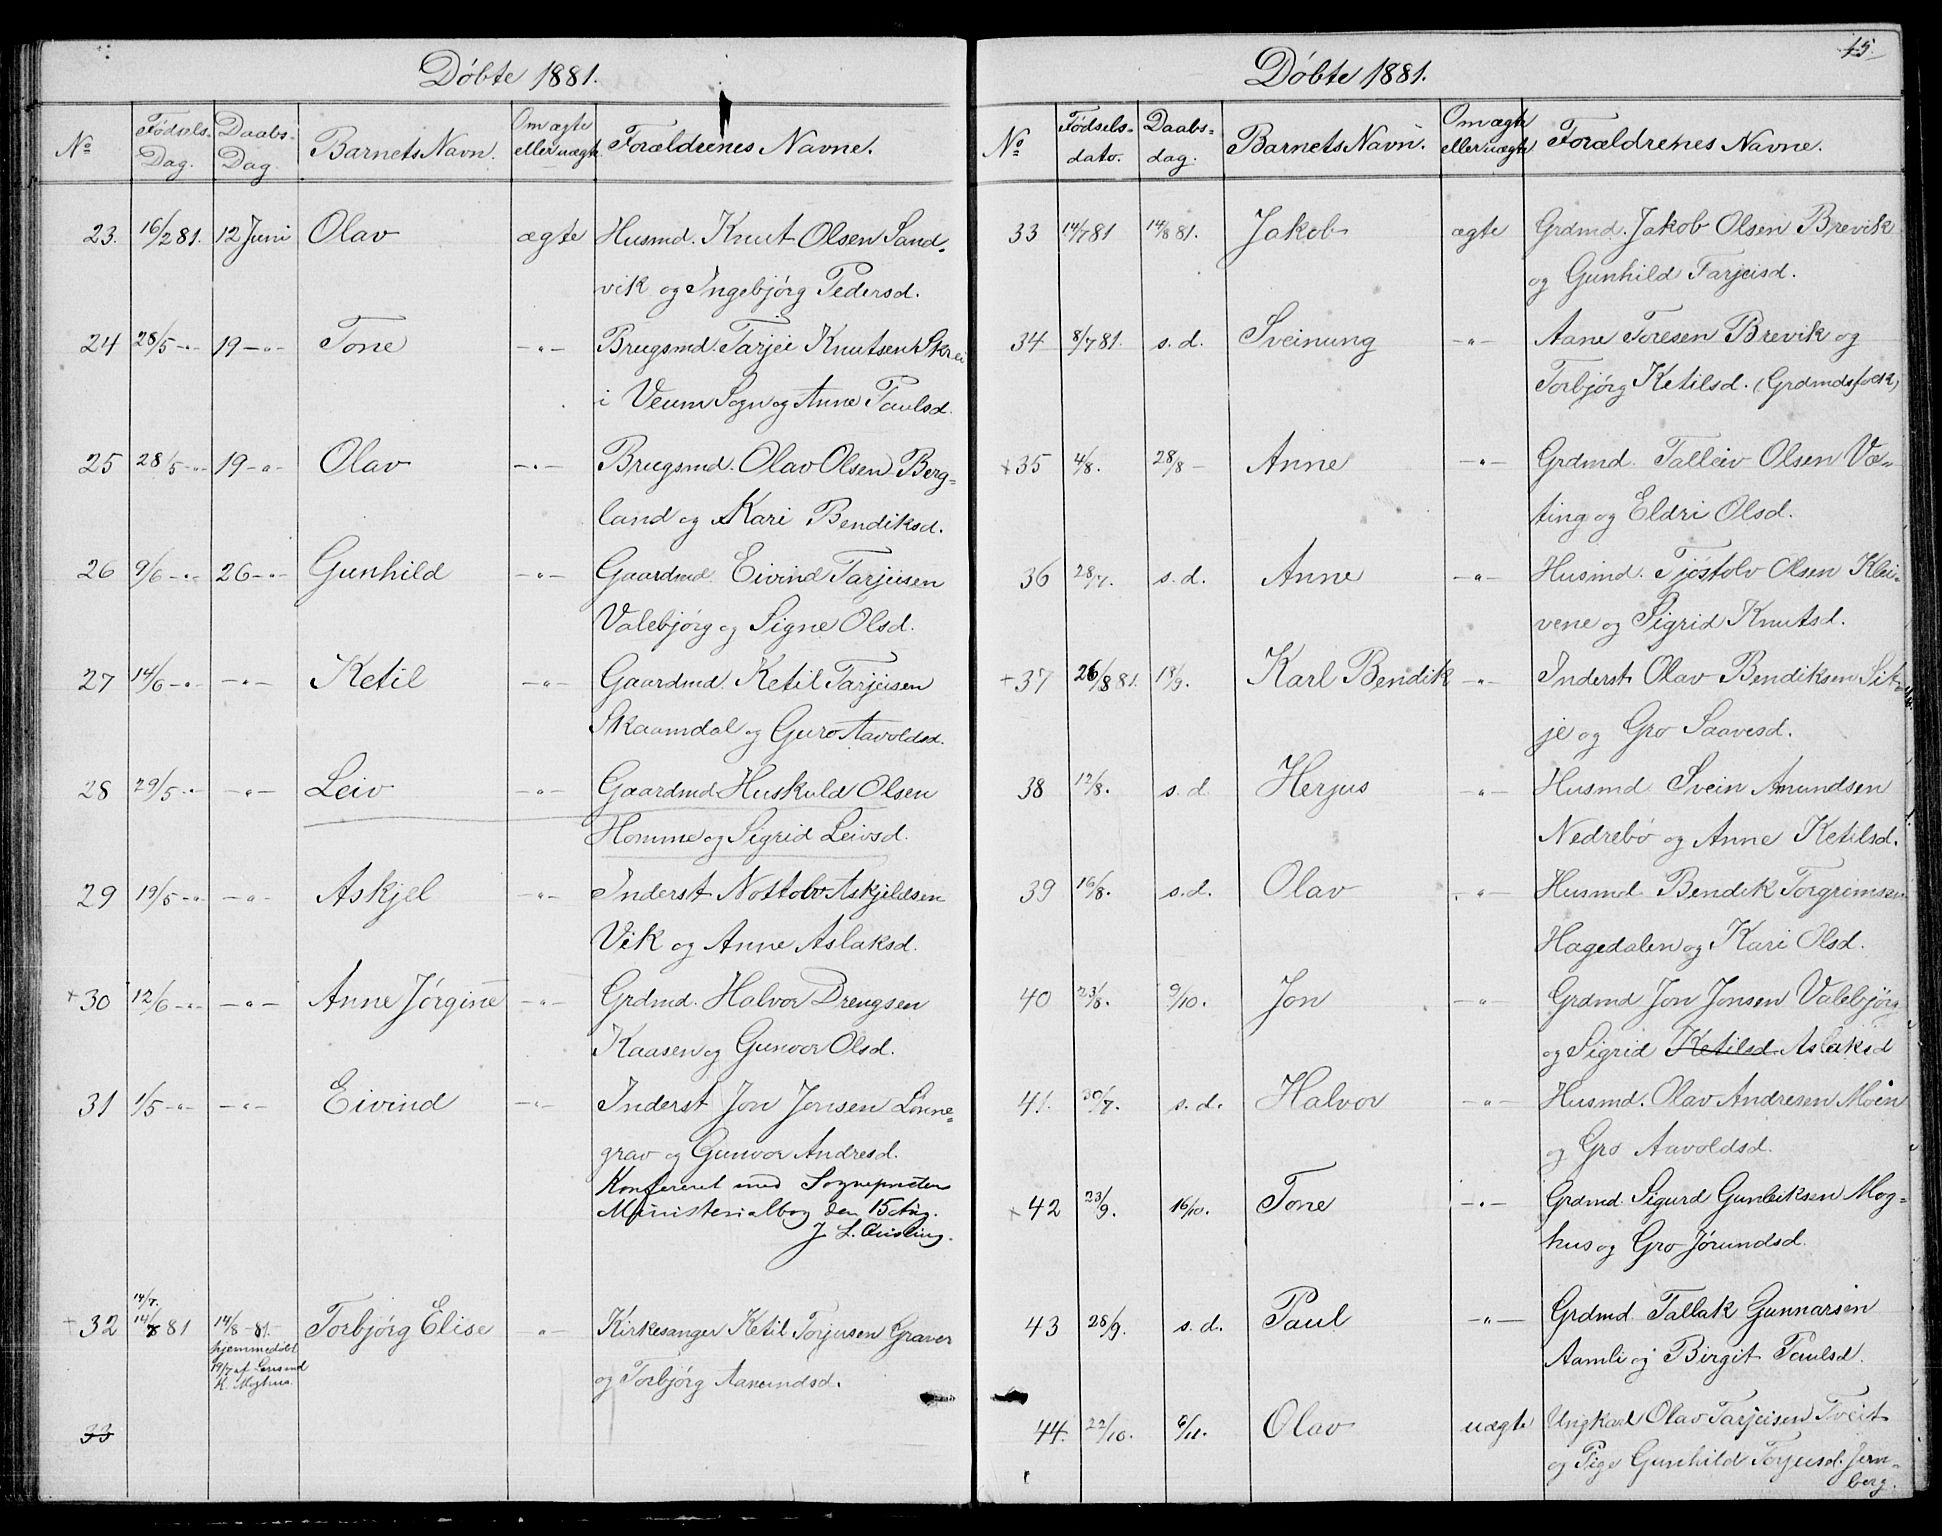 Døbte 1881.
No Fødsels-Dag. Daabs-Dag. Barnets Navn. Om ægte eller uægte Forældrenes Navne.
23. 16/2 81. 12 Juni Olav ægte Husmd. Knut Olsen Sand-
vik og Ingebjørg Pedersd.
24 28/5 -"- 19 -"- Tone -"- Brugsmd. Tarjei Knutsen Skrei
i Veum Sogn og Anne Paulsd.
25 28/5 -"- 19 -"- Olav -"- Brugsmd. Olav Olsen Berg-
land og Kari Bendiksd.
26 9/6 -"- 26 -"- Gunhild -"- Gaardmd. Eivind Tarjeisen
Valebjørg og Signe Olsd.
27 14/6 -"- -"- Ketil -"- Gaardmd. Ketil Tarjeisen
Skaamdal og Guro Aavoldsd.
28 29/5 -"- -"- Leiv -"- Gaardmd. Huskuld Olsen
Homme og Sigrid Leivsd.
29 19/5 -"- -"- Askjel -"- Inderst Nottolv Askjeldsen
Vik og Anne Aslaksd.
+ 30 12/6 -"- -"- Anne Jørgine -"- Grdmd. Halvor Drengsen
Kaasen og Gunvor Olsd.
31 1/5 -"- -"- Eivind -"- Inderst Jon Jonsen Lønne-
grav og Gunvor Andresd.
Konfereret med Sogneprestens
Ministerialbog den 15 Aug.
J. L. Qvisling.
14/7.
+ 32 14/8 81 14/8 -81. Torbjørg Elise -"- Kirkesanger Ketil Torjusen Graver
hjemmedøbt
19/7 af Lensmd
K. Moghus.
og Torbjørg Aamundsd.
33
45.
Døbte 1881.
No Fødsels-dato. Daabs-dag. Barnets Navn. Om ægte eller uægte Forældrenes Navne.
33 14/7 81 14/8 81. Jakob ægte Grdmd. Jakob Olsen Brevik
og Gunhild Tarjeisd.
34 8/7 81. s. d. Sveinung -"- Aane Toresen Brevik og
Torbjørg Ketilsd. (Grdmdsfolk)
+ 35 4/8. 28/8 - Anne -"- Grdmd. Talleiv Olsen Væ-
ting og Eldri Olsd.
36 28/7. s. d. Anne -"- Husmd. Tjøstolv Olsen Klei-
vene og Sigrid Knutsd.
+ 37 26/8 81. 18/9. Karl Bendik -"- Inderst Olav Bendiksen Sit-
je og Gro Saavesd.
38 12/8. s. d Herjus -"- Husmd Svein Amundsen
Nedrebø og Anne Ketilsd.
39 16/8. s. d. Olav -"- Husmd Bendik Torgrimsen
Hagedalen og Kari Olsd.
40 23/8. 9/10. Jon -"- Grdmd Jon Jonsen Valebjørg
og Sigrid Ketilsd. Aslaksd
41. 30/7. s. d. Halvor -"- Husmd. Olav Andresen Moen
og Gro Aavoldsd.
+ 42 23/9. 16/10. Tone -"- Grdmd Sigurd Gunleiksen Mog-
hus og Gro Jørundsd.
43 28/9. s. d. Paul -"- Grdmd Tallak Gunnarsen
Aamli og Birgit Paulsd.
44. 22/10. 6/11. Olav uægte Ungkarl Olav Tarjeisen Tveit
og Pige Gunhild Torjusd. Jern-
berg.